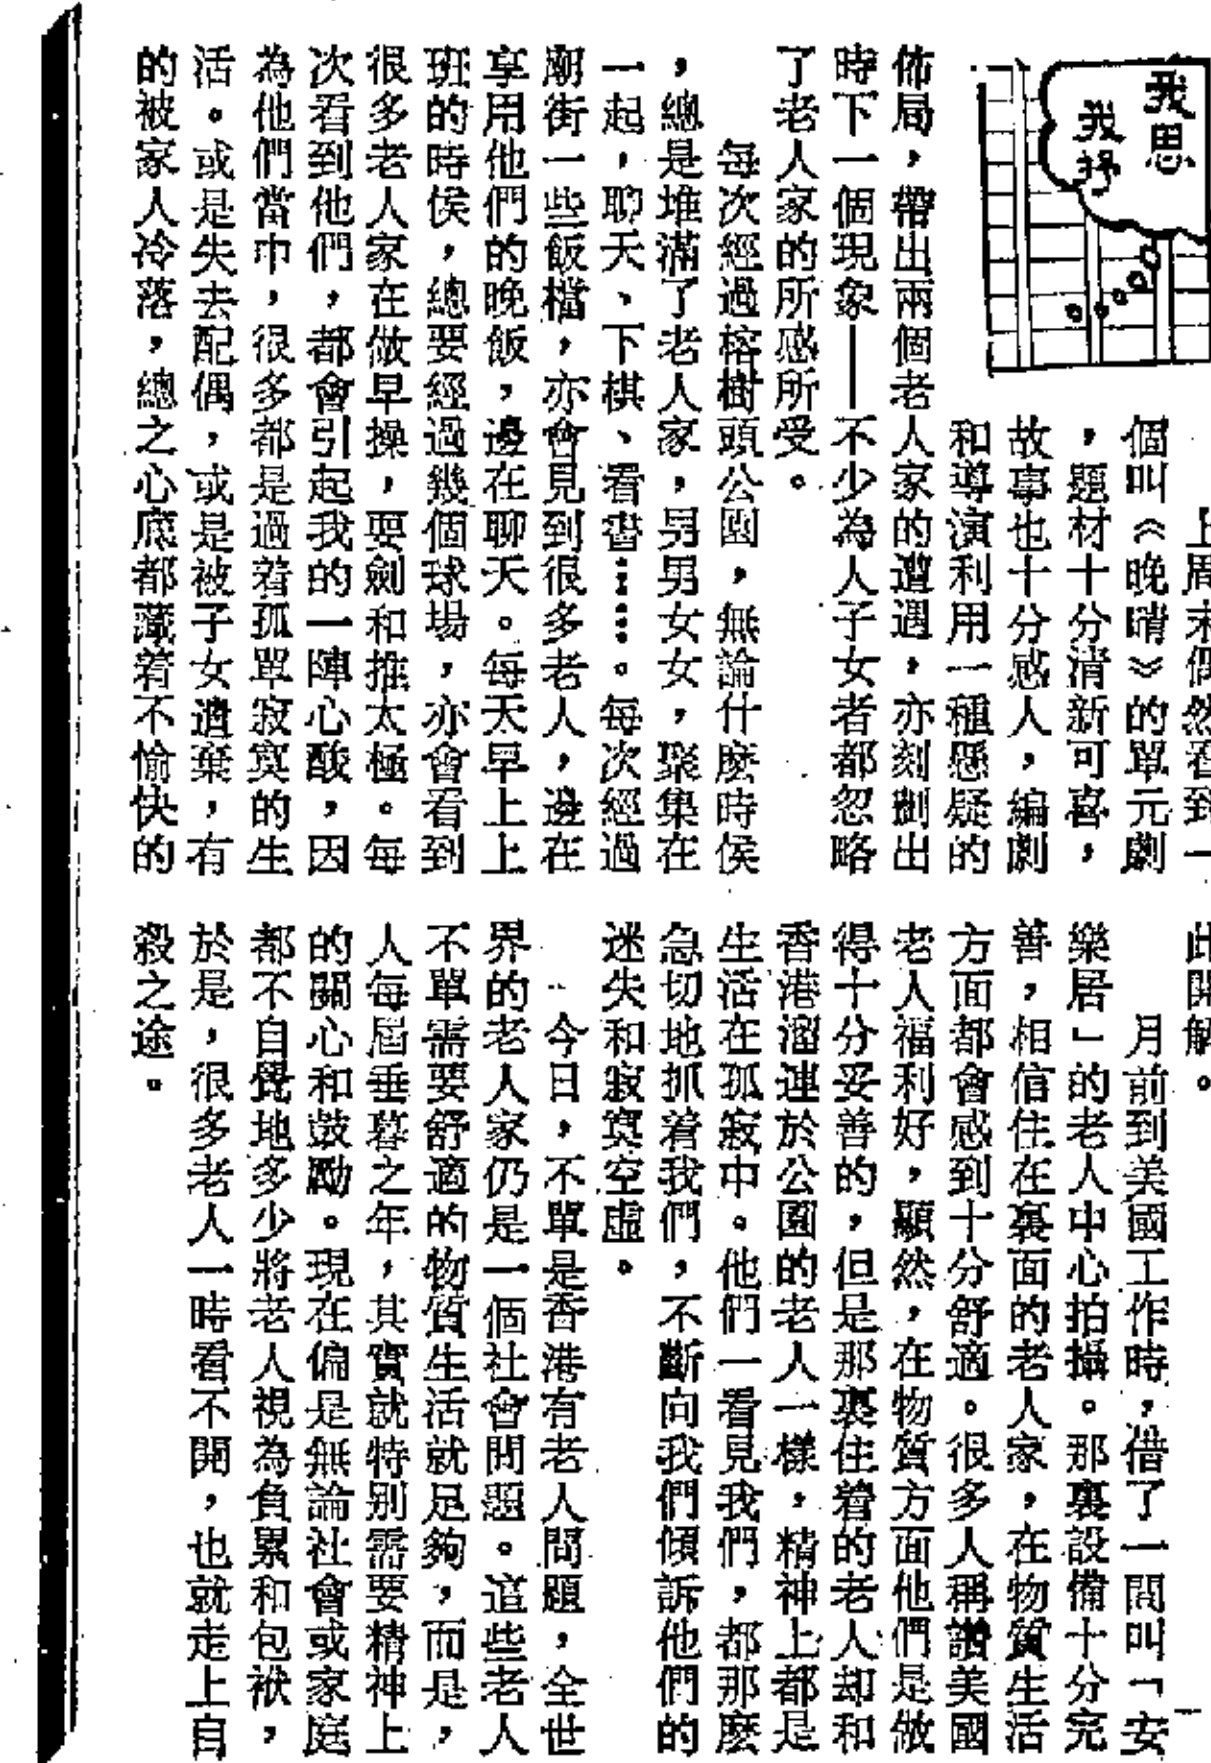 我思
我抒
上周末偶然看到一
個叫《晚晴》的單元劇
，題材十分清新可喜，
故事也十分感人，編劇
和導演利用一種懸疑的
佈局，帶出兩個老人家的遭遇，亦刻劃出
時下一個現象——不少為人子女者都忽略
了老人家的所感所受。
每次經過榕樹頭公園，無論什麼時侯
，總是堆滿了老人家，男男女女，聚集在
一起，聊天、下棋、看書……。每次經過
廟街一些飯檔，亦會見到很多老人，邊在
享用他們的晚飯，邊在聊天。每天早上上
班的時侯，總要經過幾個球場，亦會看到
很多老人家在做早操，耍劍和推太極。每
次看到他們，都會引起我的一陣心酸，因
為他們當中，很多都是過着孤單寂寞的生
活。或是失去配偶，或是被子女遺棄，有
的被家人冷落，總之心底都藏着不愉快的
此開解。
月前到美國工作時，借了一間叫「安
樂居」的老人中心拍攝。那裏設備十分完
善，相信住在裏面的老人家，在物質生活
方面都會感到十分舒適。很多人稱讚美國
老人福利好，顯然，在物質方面他們是做
得十分妥善的，但是那裏住着的老人却和
香港溜連於公園的老人一樣，精神上都是
生活在孤寂中。他們一看見我們，都那麼
急切地抓着我們，不斷向我們傾訴他們的
迷失和寂寞空虛。
今日，不單是香港有老人問題，全世
界的老人家仍是一個社會問題。這些老人
不單需要舒適的物質生活就足夠，而是，
人每屆垂暮之年，其實就特別需要精神上
的關心和鼓勵。現在偏是無論社會或家庭
都不自覺地多少將老人視為負累和包袱，
於是，很多老人一時看不開，也就走上自
殺之途。